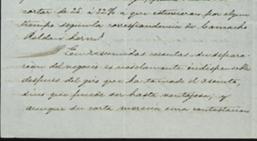 cortar de 25 á 22% a que estuvieron por algun
tiempo segun la correspondencia de Camacho
Roldan hermº
En resumidas cuentas, su separa
cion del negocio es absolutamente indispensable
despues del giro que ha tomado el asunto,
sino que puede ser hasta ventajosa; y
aunque su carta merecia una contestacion